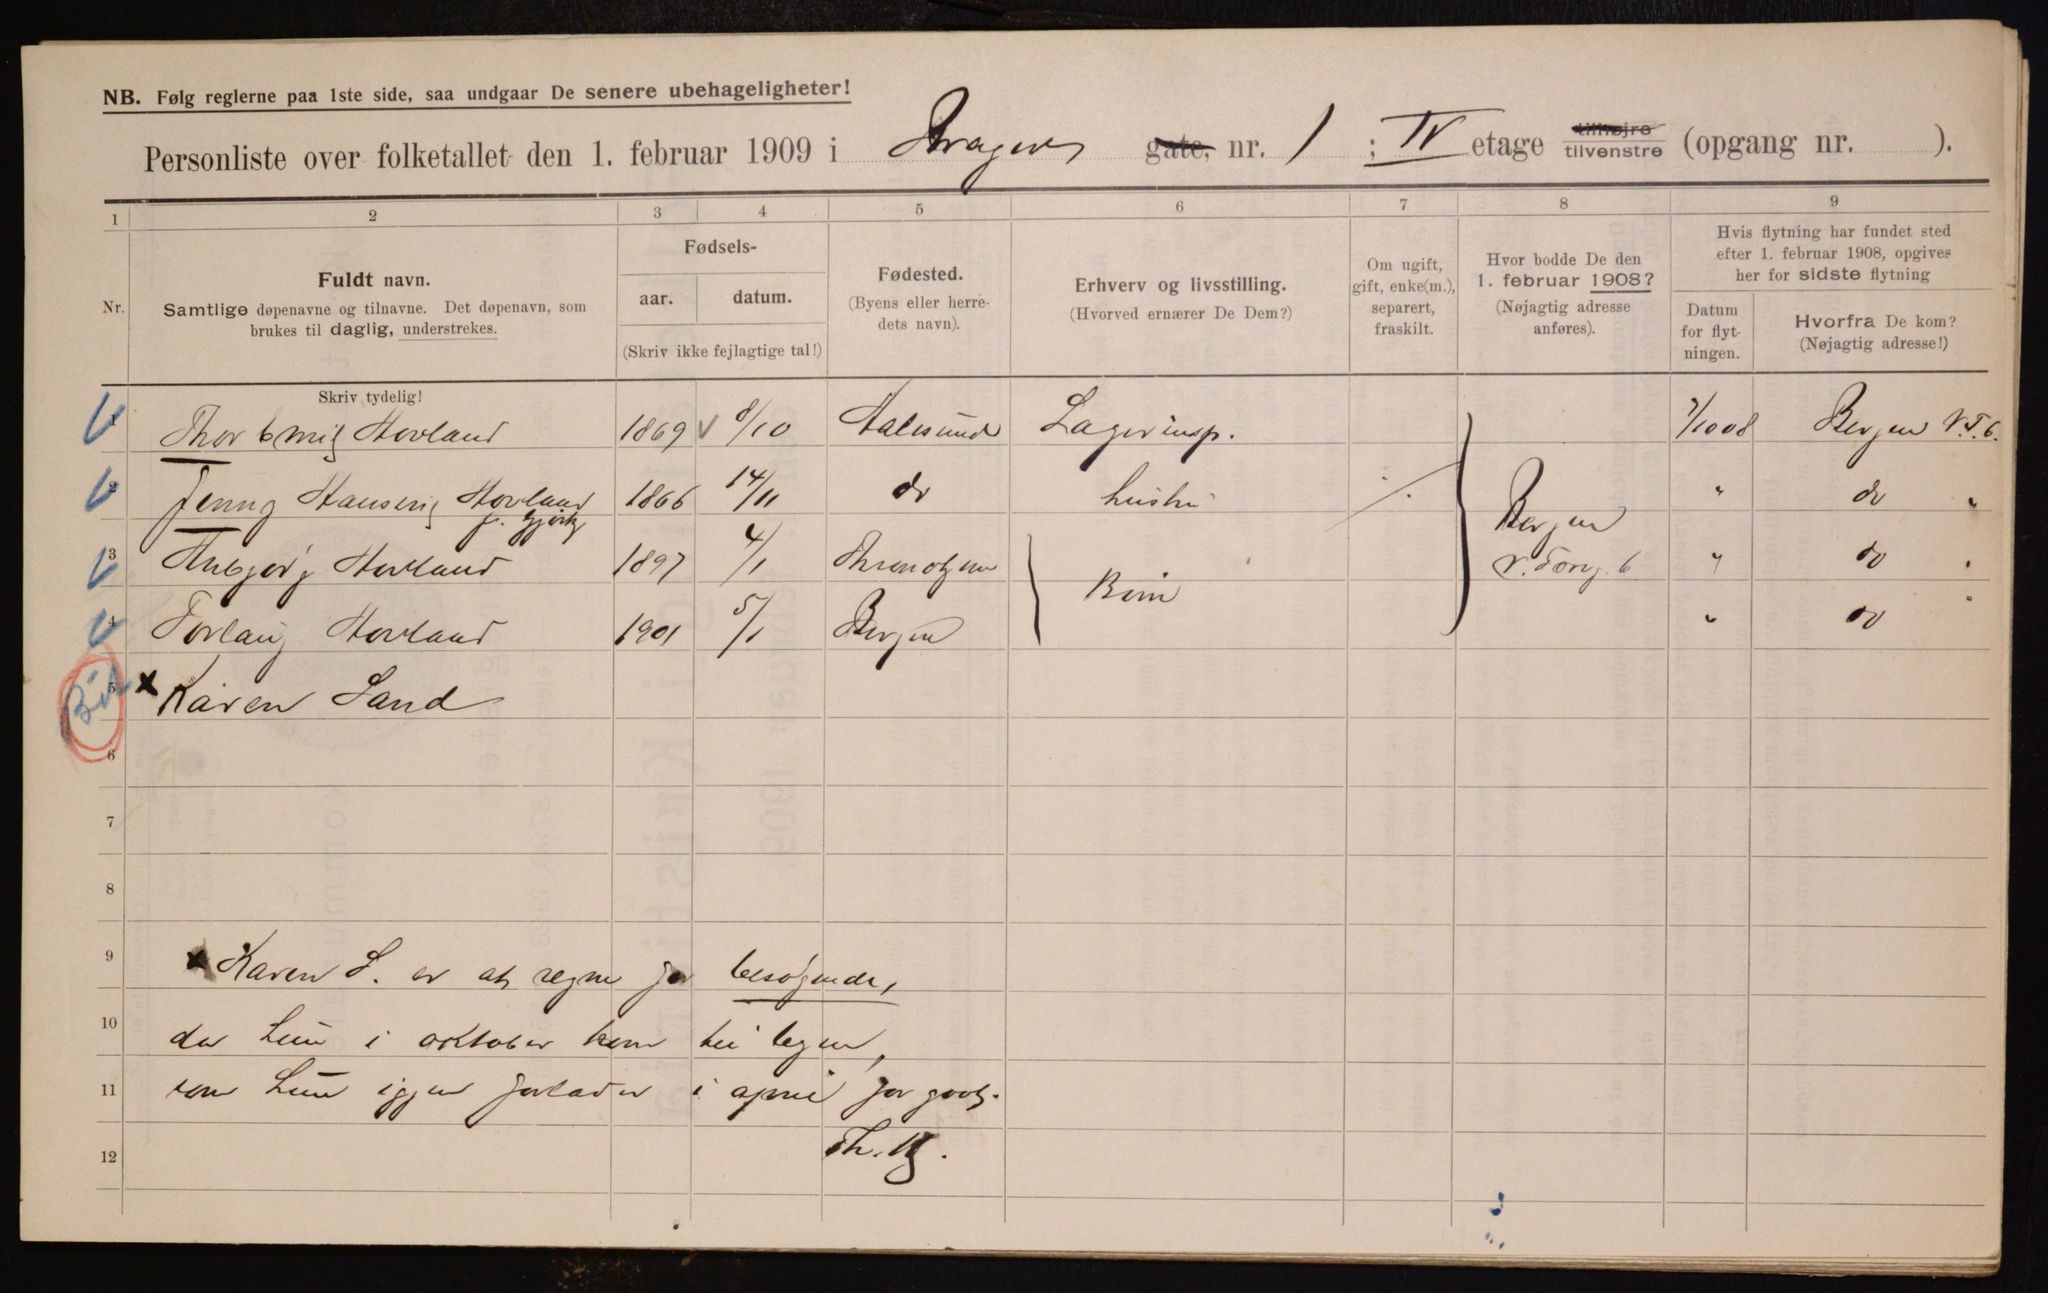 NB. Følg reglerne paa 1ste side, saa undgaar De senere ubehageligheter!
Personliste over folketallet den 1. februar 1909 i gate, nr. 1 ; IV etage tilhøjre tilvenstre (opgang nr. ).
1 2 3 4 5 6 7 8 9
Nr.
Fuldt navn.
Samtlige døpenavne og tilnavne. Det døpenavn, som
brukes til daglig, understrekes.
Skriv tydelig!
Fødsels-
aar. datum.
(Skriv ikke fejlagtige tal!)
Fødested.
(Byens eller herre-
dets navn).
Erhverv og livsstilling.
(Hvorved ernærer De Dem?)
Om ugift,
gift, enke(m.),
separert,
fraskilt.
Hvor bodde De den
1. februar 1908?
(Nøjagtig adresse
anføres).
Hvis flytning har fundet sted
efter 1. februar 1908, opgives
her for sidste flytning
Datum
for flyt-
ningen.
Hvorfra De kom?
(Nøjagtig adresse!)
1 Thor Hovland 1869 8/10 Aalesund Lagerinsp. 7/10 08 Bergen V.T.6.
2 Jenny Hovland 1866 14/11 do hustru " do "
3 Hovland 1897 4/1 Bergen V. Torg. 6 " do "
4 Torlaug Hovland 1901 5/1 Bergen Børn " do "
5 x Karen Sand
6
7
8
9 x Karen S. er at regne for besøgende,
10 da hun i oktober kom til byen,
11 som hun igjen forlader i april for godt.
12 Th. H.